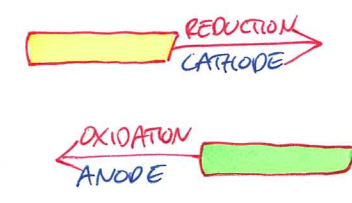 REDUCTION
CATHODE
OXIDATION
ANODE